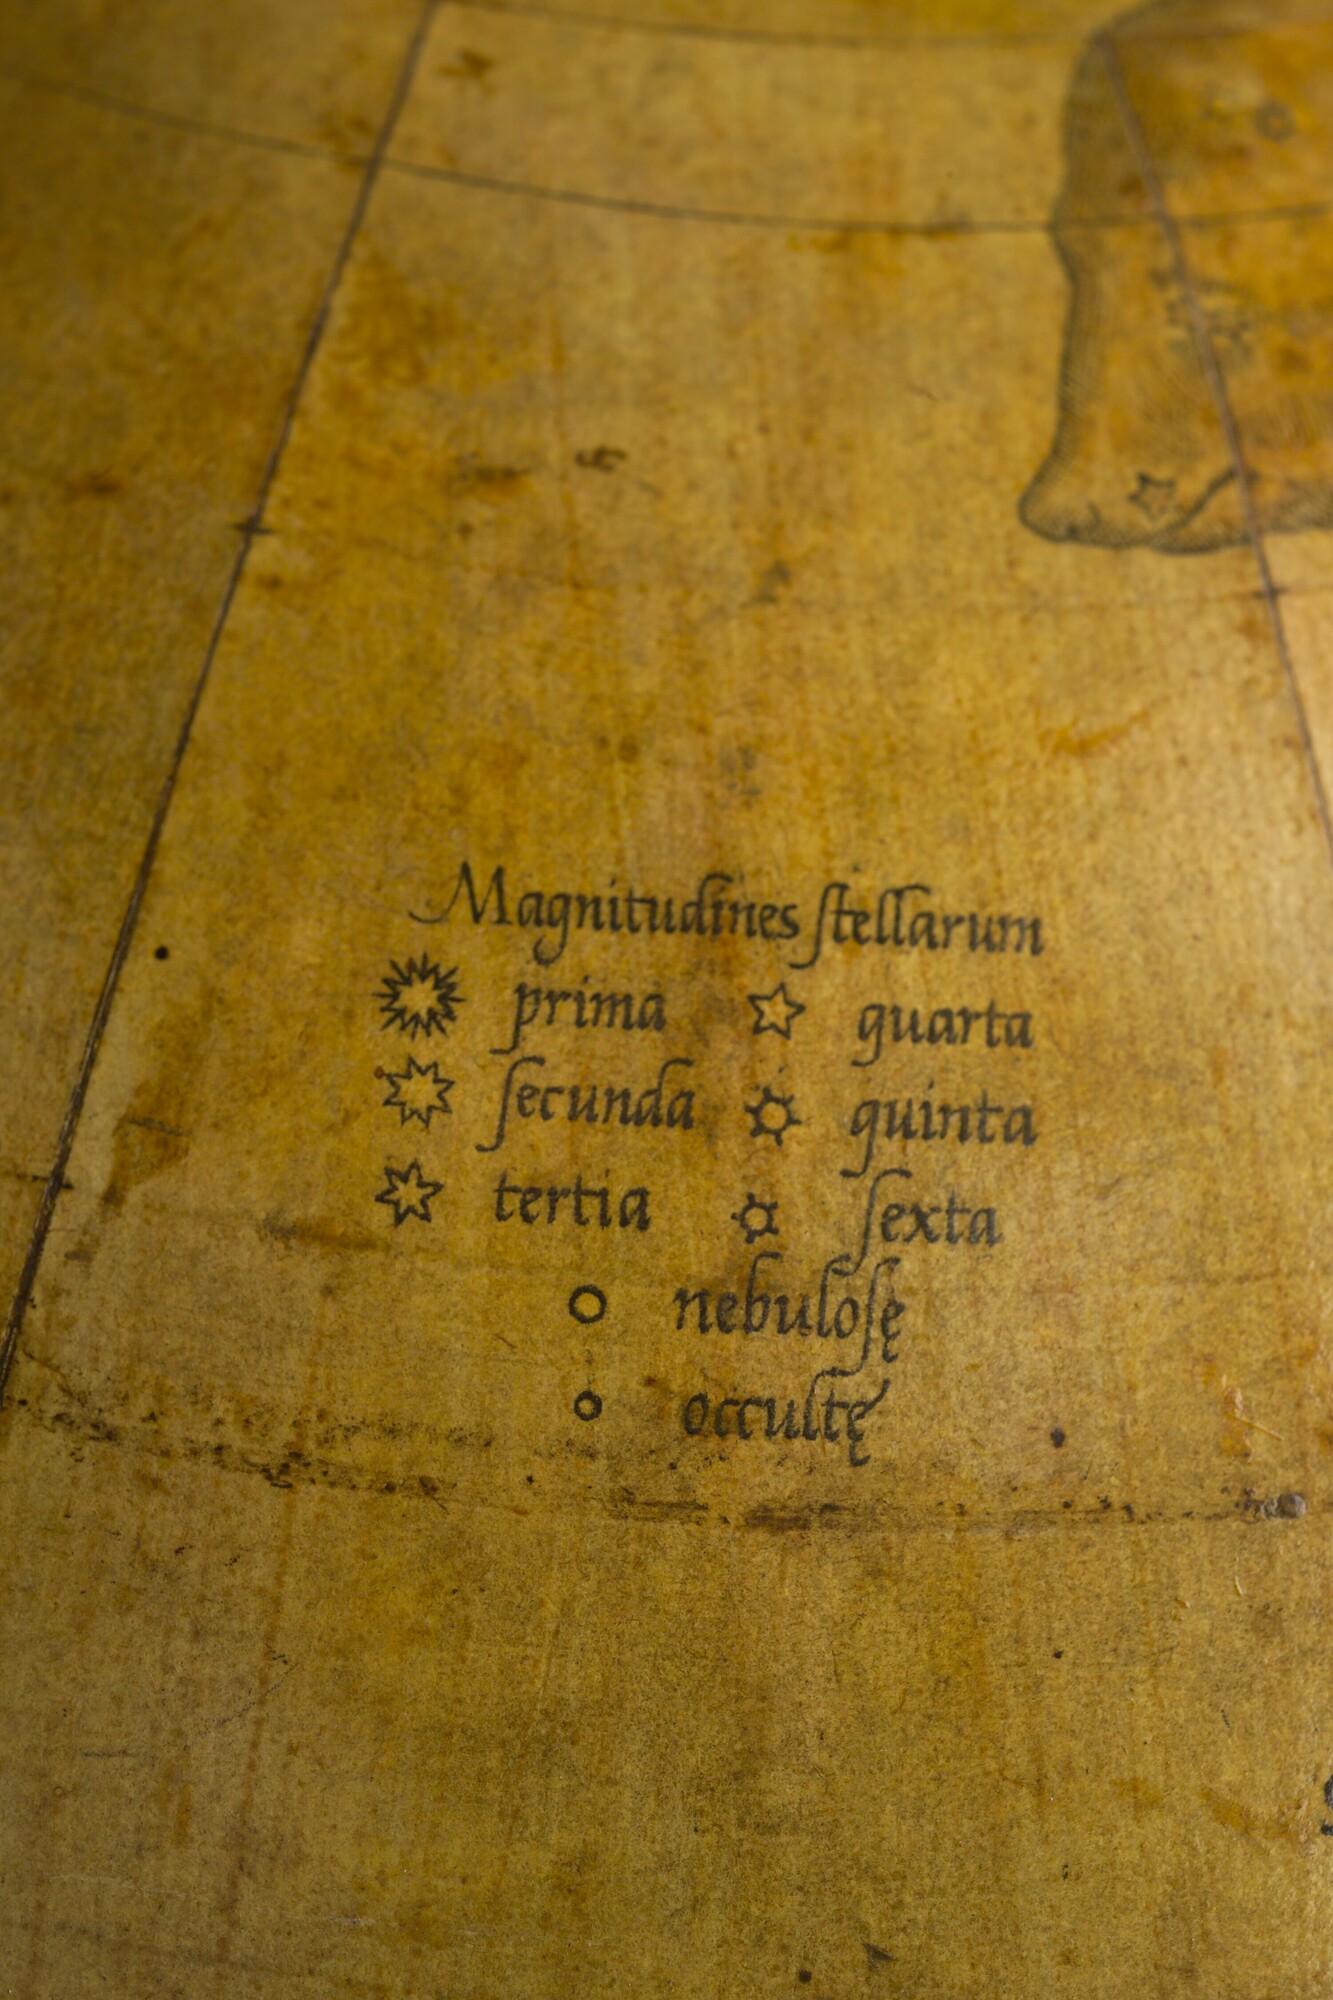 Magnitudines ſtellarum
prima quarta
ſecunda quinta
tertia ſexta
nebuloſę
occultę